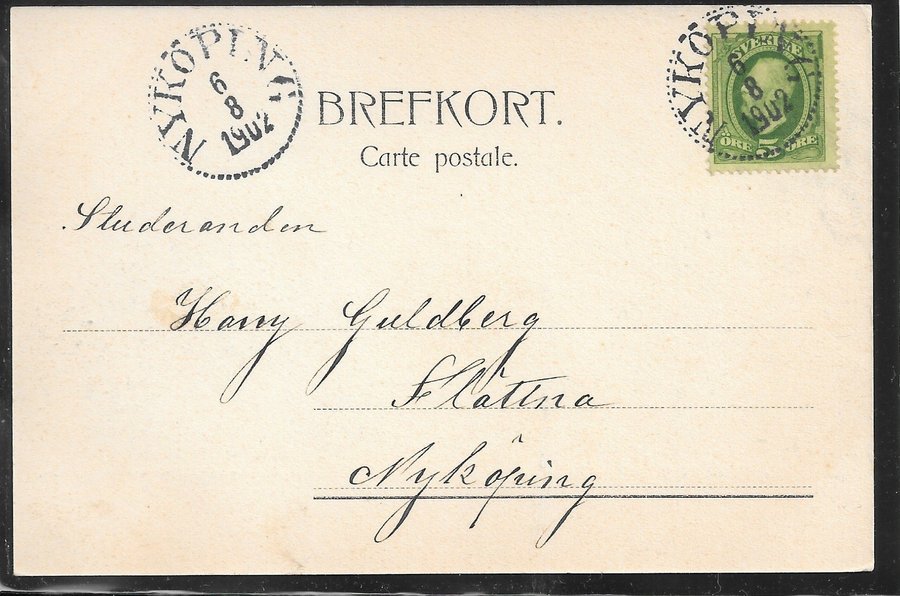 NYKÖPING
6
8
1902
BREFKORT.
Carte postale.
NYKÖPING
6
8
1902
SVERIGE
ÖRE 5 ÖRE
Studeranden
Harry Guldberg
Flättna
Nyköping